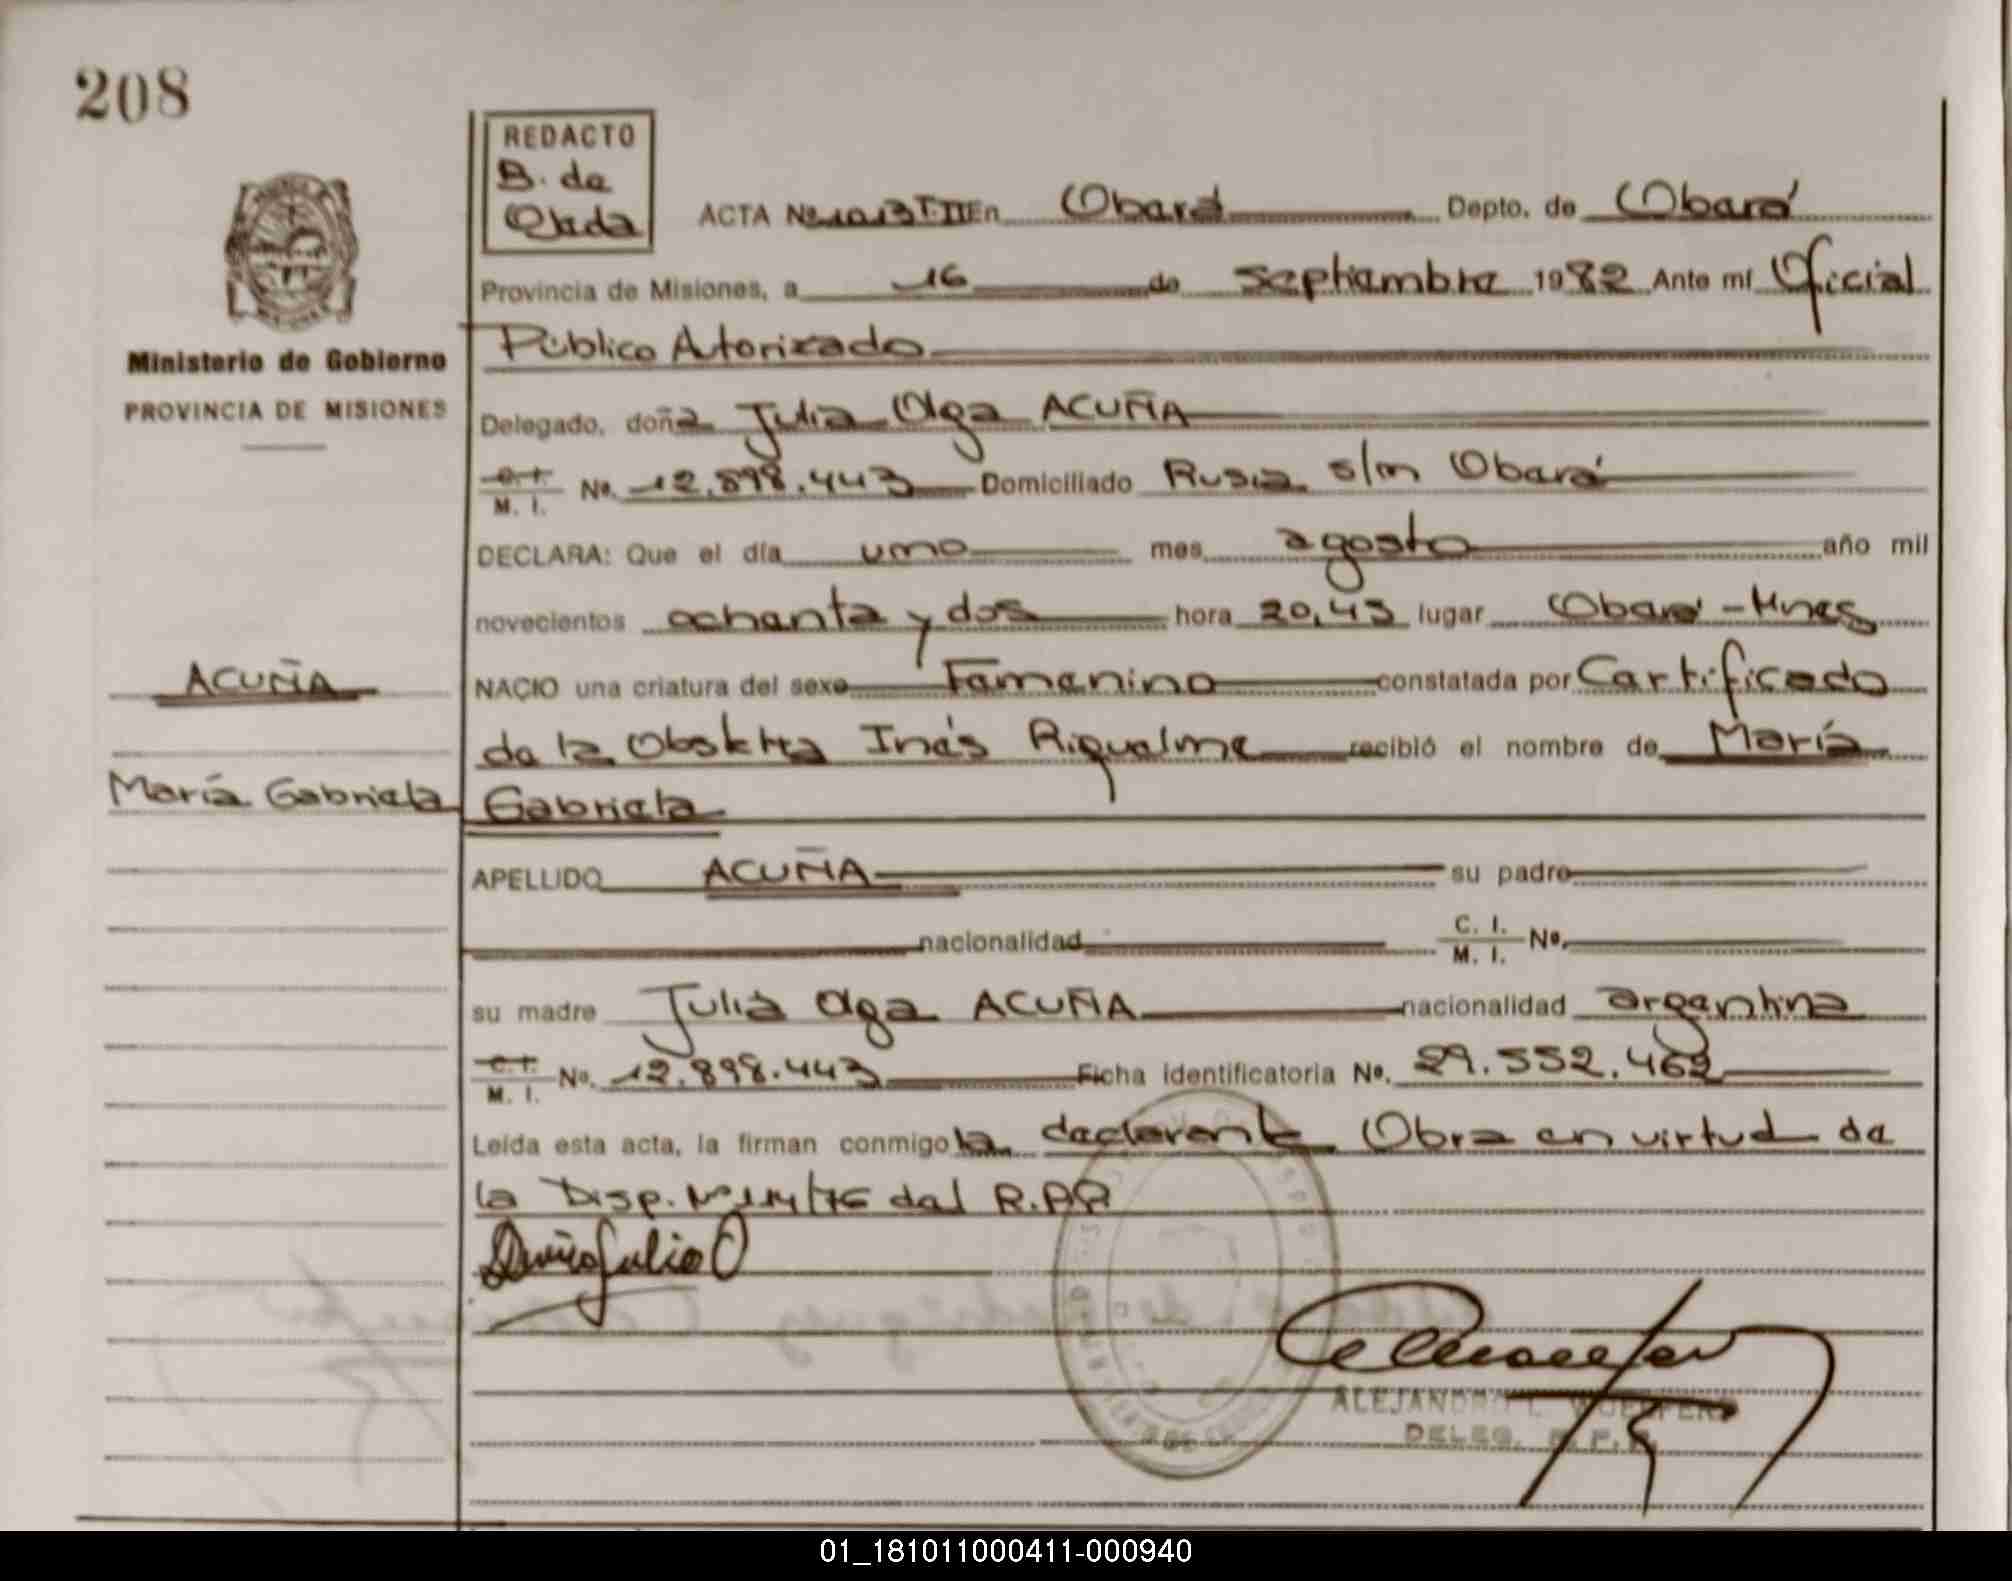 208
REDACTO
B. de
Ojeda
ACTA Nº 1013 T·II En Oberá Depto. de Oberá
Provincia de Misiones, a 16 de septiembre 1982 Ante mí Oficial
Público Autorizado
Ministerio de Gobierno
PROVINCIA DE MISIONES
Delegado, doña Julia Olga ACUÑA
C.I.
M. I. No. 12.898.443 Domiciliado Rusia s/n Oberá
DECLARA: Que el día uno mes agosto año mil
novecientos ochenta y dos hora 20,45 lugar Oberá - Mnes
ACUÑA
NACIO una criatura del sexo Femenino constatada por Certificado
de la Obstetra Inés Riquelme recibió el nombre de María
María Gabriela
Gabriela
APELLIDO ACUÑA su padre
nacionalidad C. I.
M. I. No.
su madre Julia Olga ACUÑA nacionalidad argentina
C. I.
M. I. No. 12.898.443 Ficha identificatoria No. 29.552.462
Leída esta acta, la firman conmigo la declarante Obra en virtud de
la Disp. Nº 114/76 del R.P.P
Acuña Julia O
ALEJANDRO L.
DELEG. R. P. P.
01_181011000411-000940